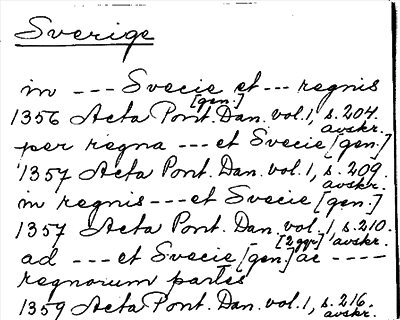 Sverige
in --- Svecie et --- regnis
[gen.]
1356 Acta Pont. Dan. vol. 1, s. 204.
avskr.
per regna --- et Svecie [gen.]
1357 Acta Pont. Dan. vol. 1, s. 209.
avskr.
in regnis --- et Svecie [gen.]
1357 Acta Pont. Dan. vol. 1, s. 210.
[2 ggr] avskr.
ad --- et Svecie [gen] ac ----
regnorum partes
1359 Acta Pont. Dan. vol. 1, s. 216.
avskr.